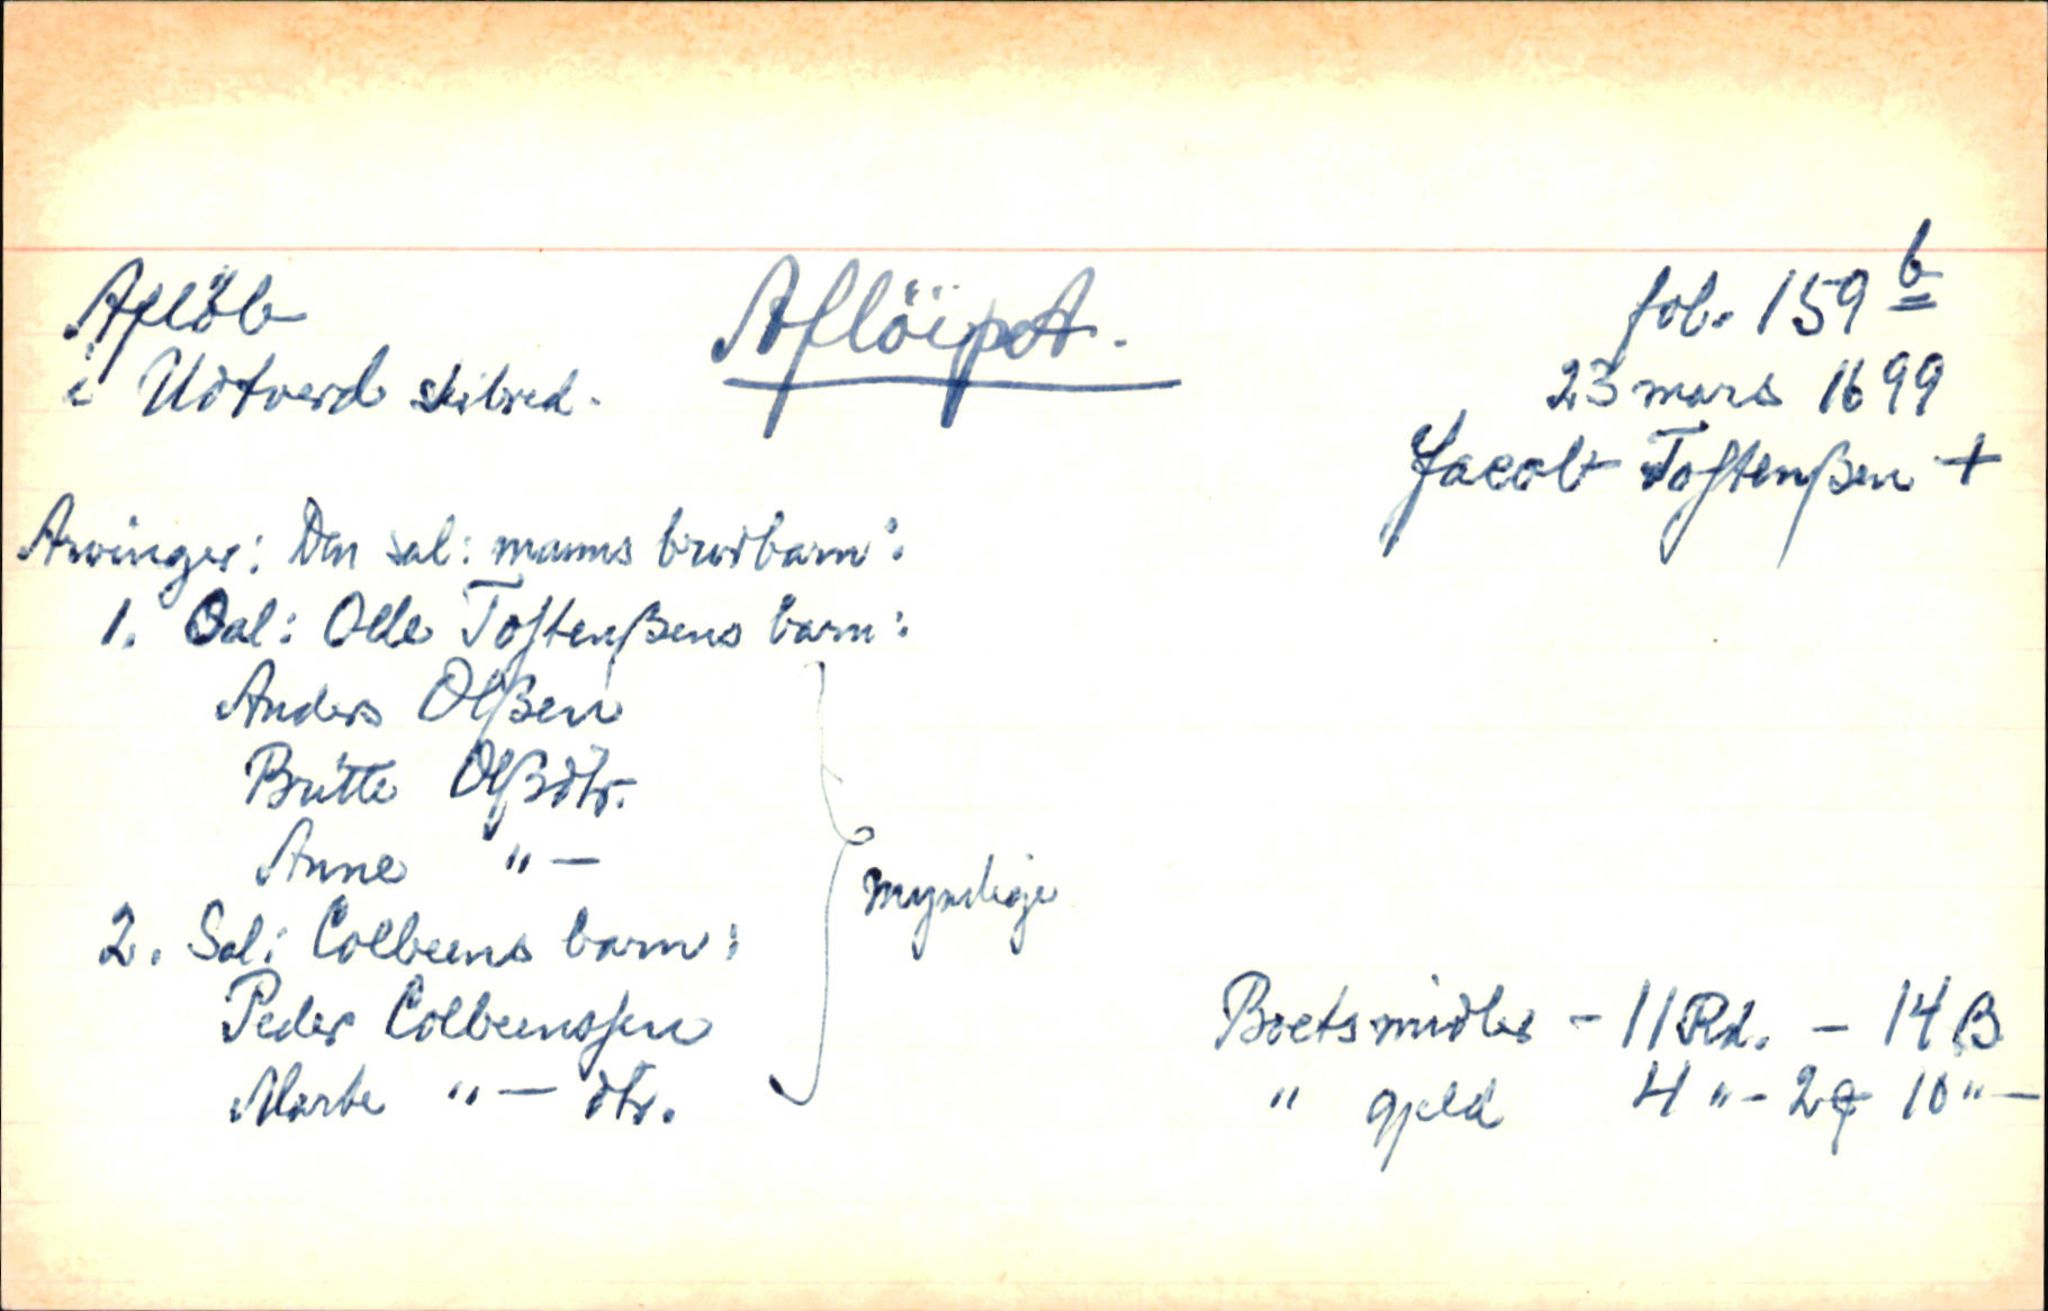 Aflöb
i Udtverd skibred.
Aflöipet.
fol. 159 b
23 mars 1699
Jacob Tostenßen +
Arvinger: Den sal: manns brorbarn:
1. Sal: Olle Tostenßens barn:
Anders Olßen
Britte Olßdtr.
Anne " —
2. Sal: Colbeens barn:
Peder Colbeenssen
Marte " — dtr.
myndige
Boets midler - 11 Rd. - 14 β
" gjeld 4 " - 2 10 " —